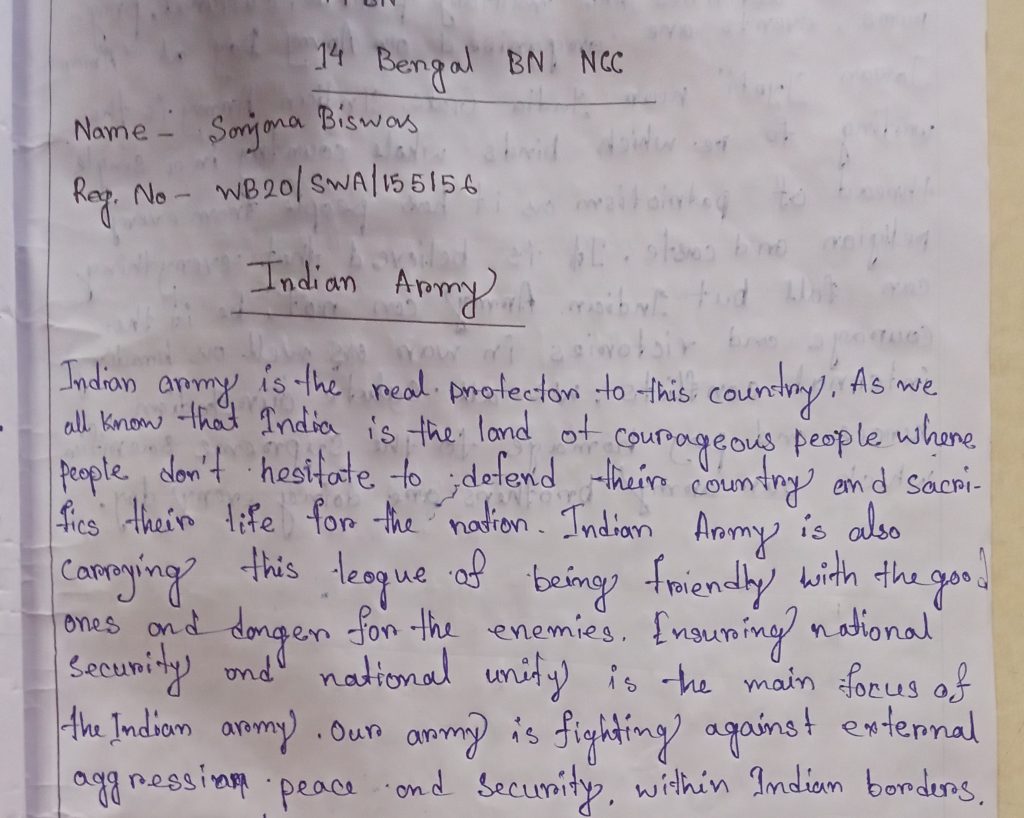 14 Bengal BN. NCC
Name - Sonjona Biswas
Reg. No - WB20/SWA/155156
Indian Army
Indian army is the real protector to this country. As we
all know that India is the land of courageous people where
people don't hesitate to defend their country and sacri-
fics their life for the nation. Indian Army is also
carrying this league of being friendly with the good
ones and danger for the enemies. Ensuring national
security and national unity is the main focus of
the Indian army. Our army is fighting against external
aggression peace and security, within Indian borders.